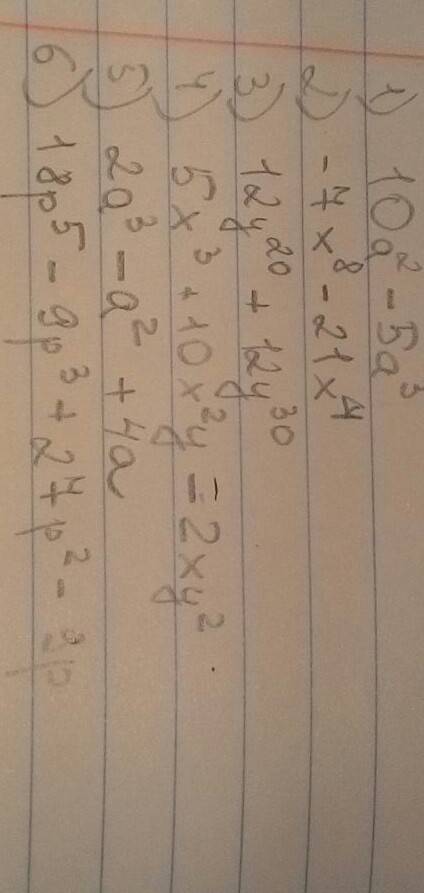 1) 10a² - 5a³
2) -7x⁸ - 21x⁴
3) 12y²⁰ + 12y³⁰
4) 5x³ + 10x²y = 2xy².
5) 2a³ - a² + 4a
6) 18p⁵ - 9p³ + 27p² -